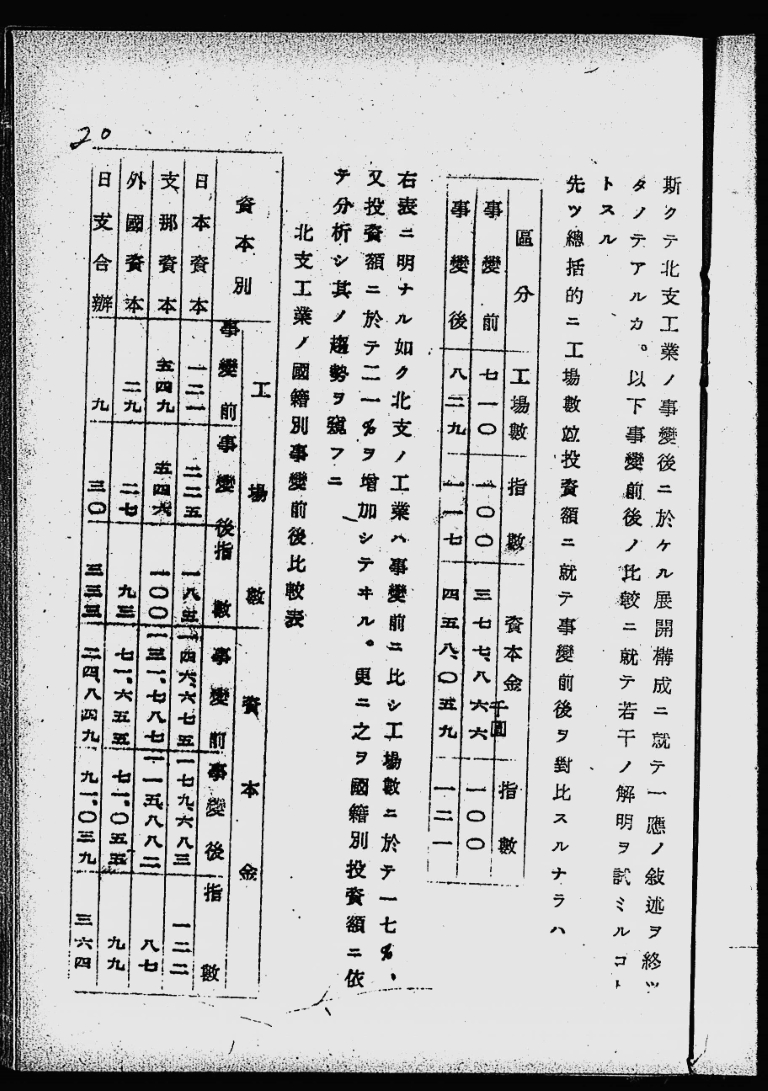 斯クテ北支工業ノ事變後ニ於ケル展開構成ニ就テ一應ノ敍述ヲ終ツ
タノテアルカ。以下事變前後ノ比較ニ就テ若干ノ解明ヲ試ミルコト
トスル
先ツ總括的ニ工場數竝投資額ニ就テ事變前後ヲ對比スルナラハ
區分 工場數 指數 資本金千圓 指數
事變前 七一〇 一〇〇 三七七、八六六 一〇〇
事變後 八二九 一一七 四五八、〇五九 一二一
右表ニ明ナル如ク北支ノ工業ハ事變前ニ比シ工場數ニ於テ一七%、
又投資額ニ於テ二一%ヲ增加シテヰル。更ニ之ヲ國籍別投資額ニ依
テ分析シ其ノ趨勢ヲ窺フニ
北支工業ノ國籍別事變前後比較表
資本別 工場數 資本金
事變前 事變後 指數 事變前 事變後 指數
日本資本 一二一 二二五 一八五 一四六、六七五 一七九、六八三 一二二
支那資本 五四九 五四六 一〇〇 一三一、七八七 一一五、八八二 八七
外國資本 二九 二七 九三 七一、六五五 七一、〇五五 九九
日支合辦 九 三〇 三三三 二四、八四九 九一、〇三九 三六四
20